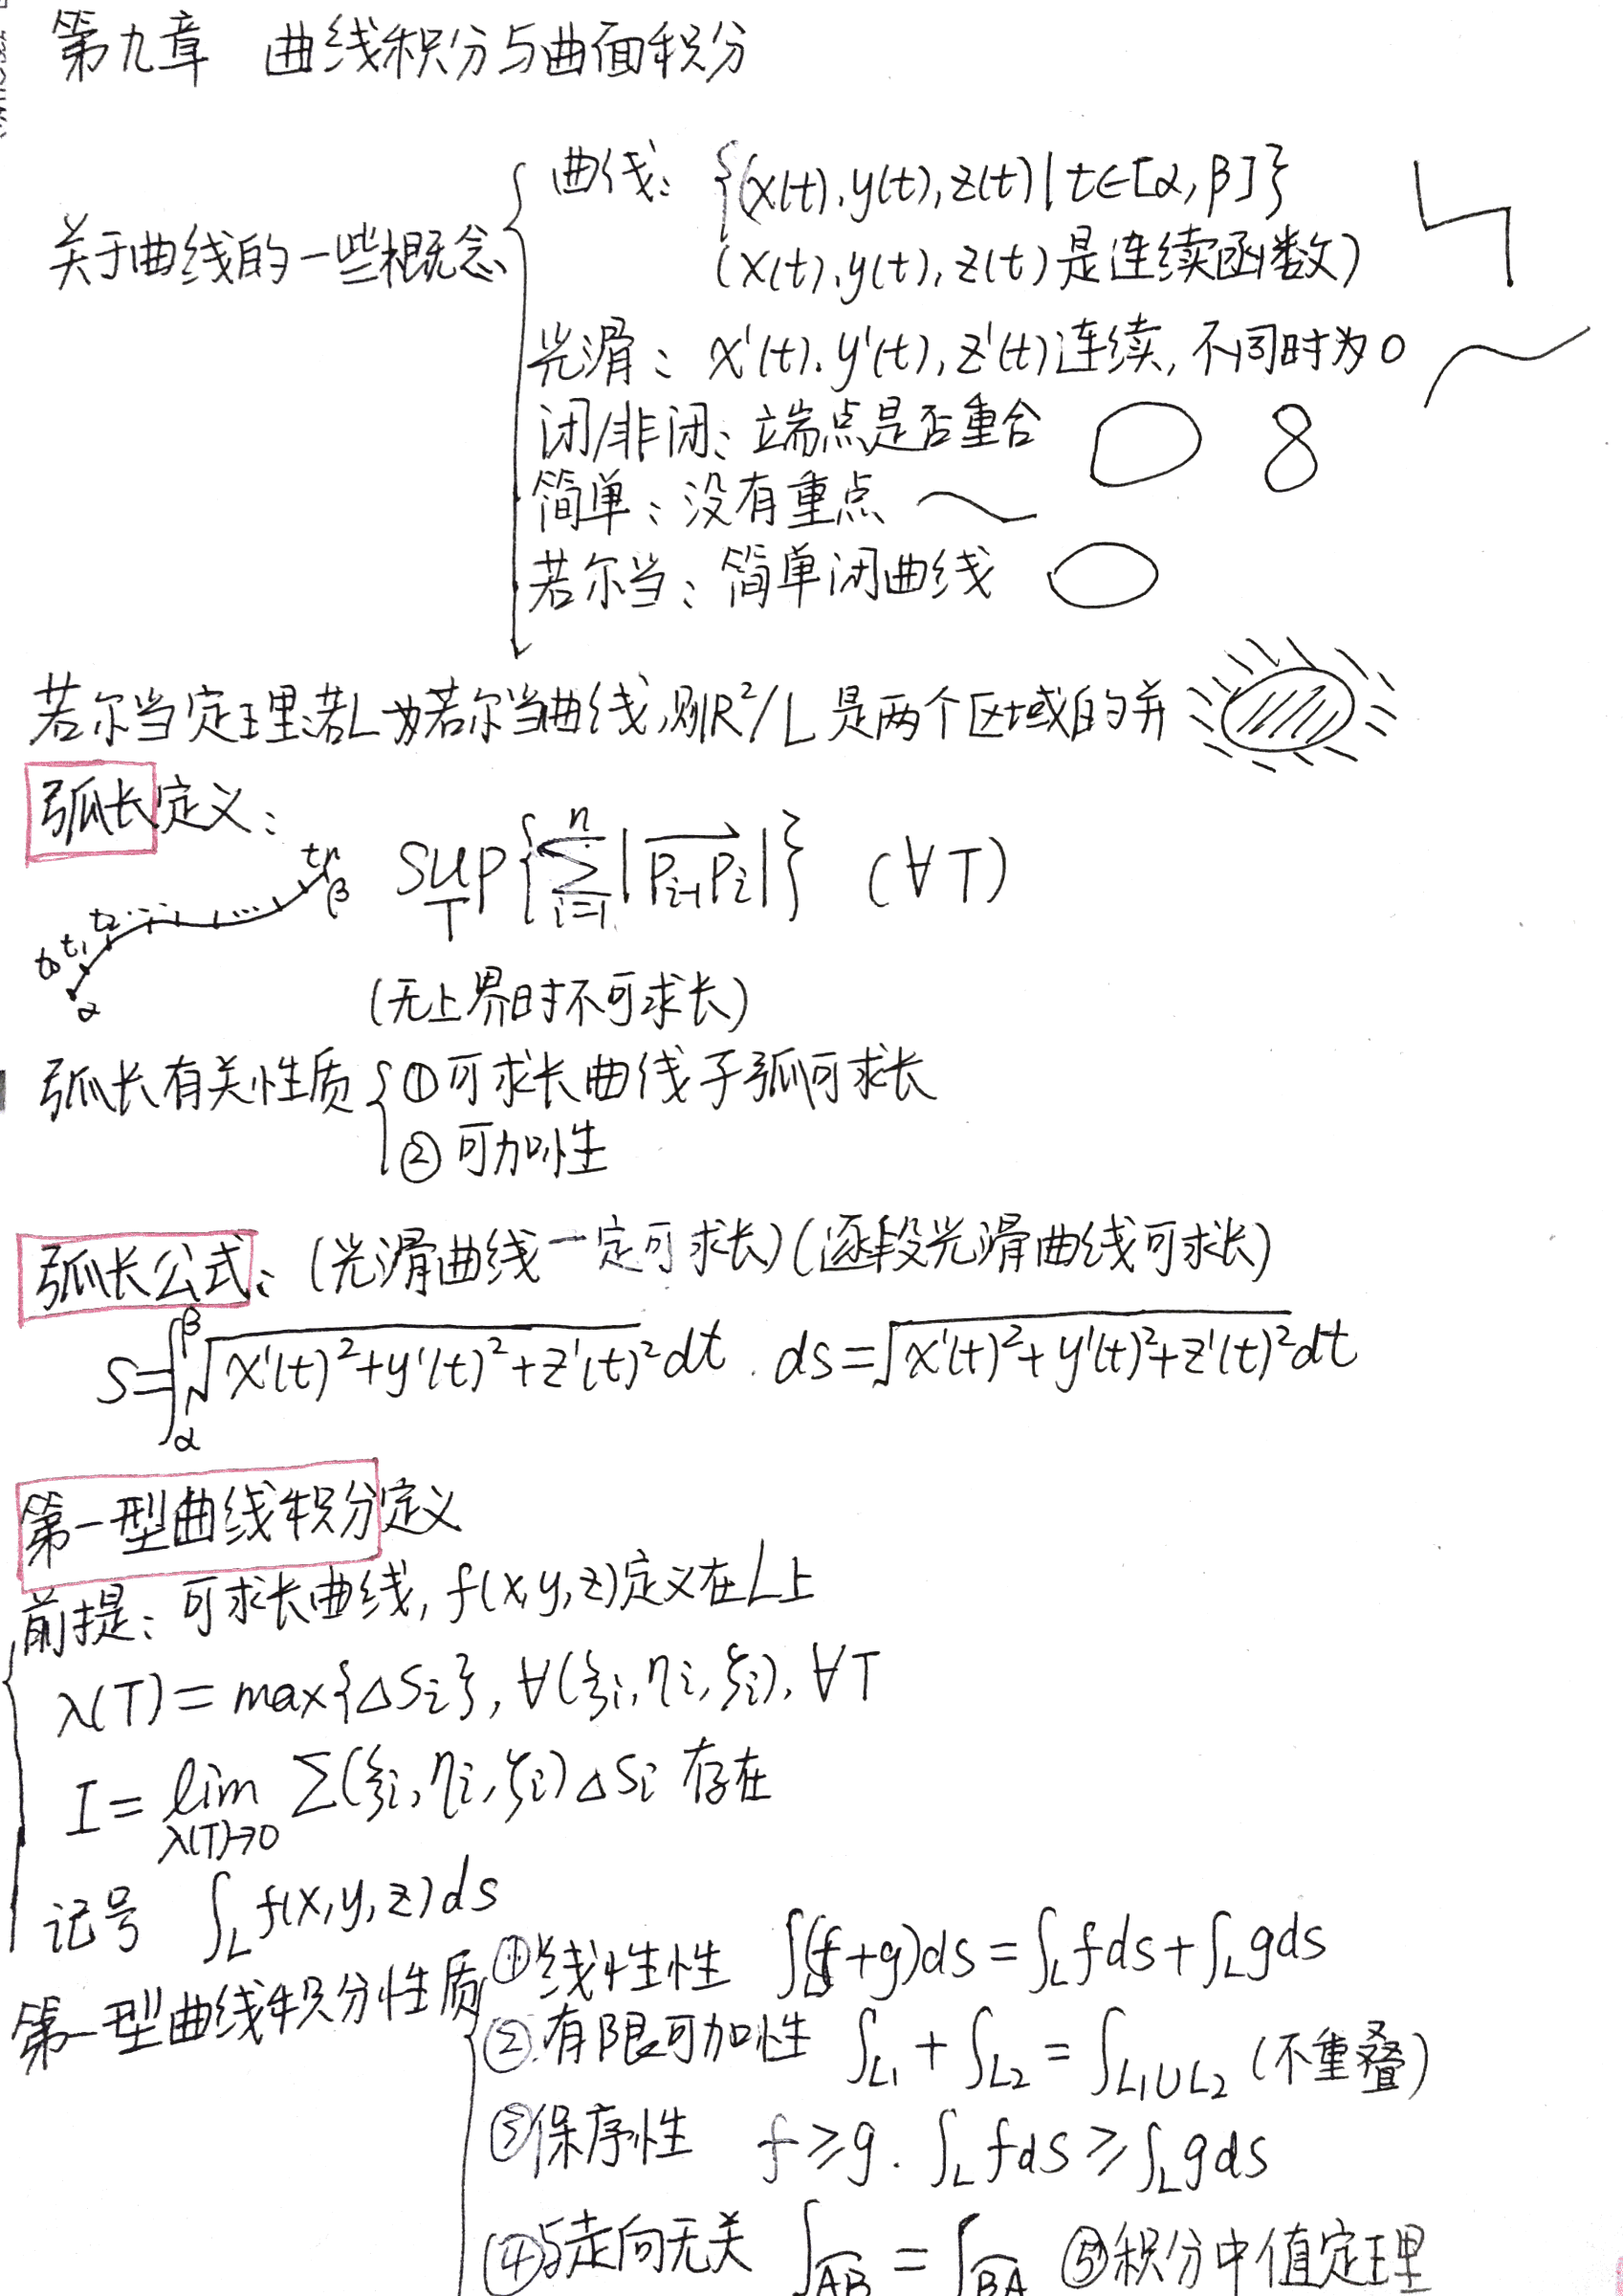 第九章 曲线积分与曲面积分
关于曲线的一些概念
曲线: {(x(t),y(t),z(t)|t∈[α,β]}
(x(t),y(t),z(t)是连续函数)
光滑: x'(t),y'(t),z'(t)连续,不同时为0
闭/非闭: 端点是否重合
简单: 没有重点
若尔当: 简单闭曲线
若尔当定理:若L为若尔当曲线,则R²/L是两个区域的并
弧长定义:
sup_T{∑_{i=1}^{n}|P_{i-1}P_i|} (∀T)
t₀ t₁ t₂ ... ... tn
α β
(无上界时不可求长)
弧长有关性质 ①可求长曲线子弧可求长
②可加性
弧长公式: (光滑曲线一定可求长)(逐段光滑曲线可求长)
S=∫_α^β √(x'(t)²+y'(t)²+z'(t)²)dt. ds=√(x'(t)²+y'(t)²+z'(t)²)dt
第一型曲线积分定义
前提: 可求长曲线, f(x,y,z)定义在L上
λ(T)=max{ΔSi}, ∀(ξi,ηi,ζi), ∀T
I=lim_{λ(T)→0} ∑(ξi,ηi,ζi)ΔSi 存在
记号 ∫_L f(x,y,z)ds
第一型曲线积分性质
①线性性 ∫_L(f+g)ds=∫_L fds+∫_L gds
②有限可加性 ∫_{L1}+∫_{L2}=∫_{L1∪L2} (不重叠)
③保序性 f≥g. ∫_L fds≥∫_L gds
④与走向无关 ∫_{AB}=∫_{BA} ⑤积分中值定理